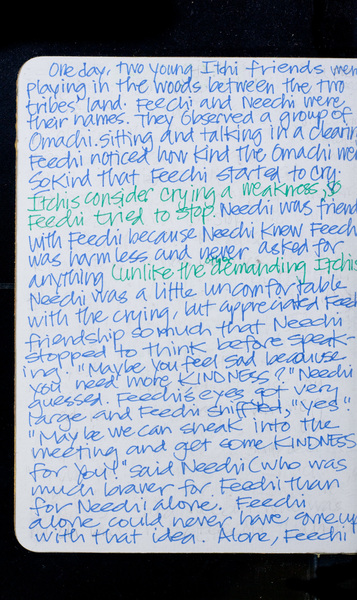 One day, two young Itchi friends were
playing in the woods between the two
tribes' land. Feechi and Neechi were
their names. They observed a group of
Omachi sitting and talking in a clearin
Feechi noticed how kind the Omachi we
So kind that Feechi started to cry.
Itchis consider crying a weakness, so
Feechi tried to stop. Neechi was friend
with Feechi because Neechi knew Feech
was harmless and never asked for
anything (unlike the demanding Itchis
Neechi was a little uncomfortable
with the crying, but appreciated Feech
friendship so much that Neechi
stopped to think before speak-
ing. "Maybe you feel sad because
you need more KINDNESS?" Neechi
guessed. Feechi's eyes got very
large and Feechi sniffled, "yes".
"Maybe we can sneak into the
meeting and get some KINDNESS
for you!" said Neechi (who was
much braver for Feechi than
for Neechi alone. Feechi
alone could never have come up
with that idea. Alone, Feechi